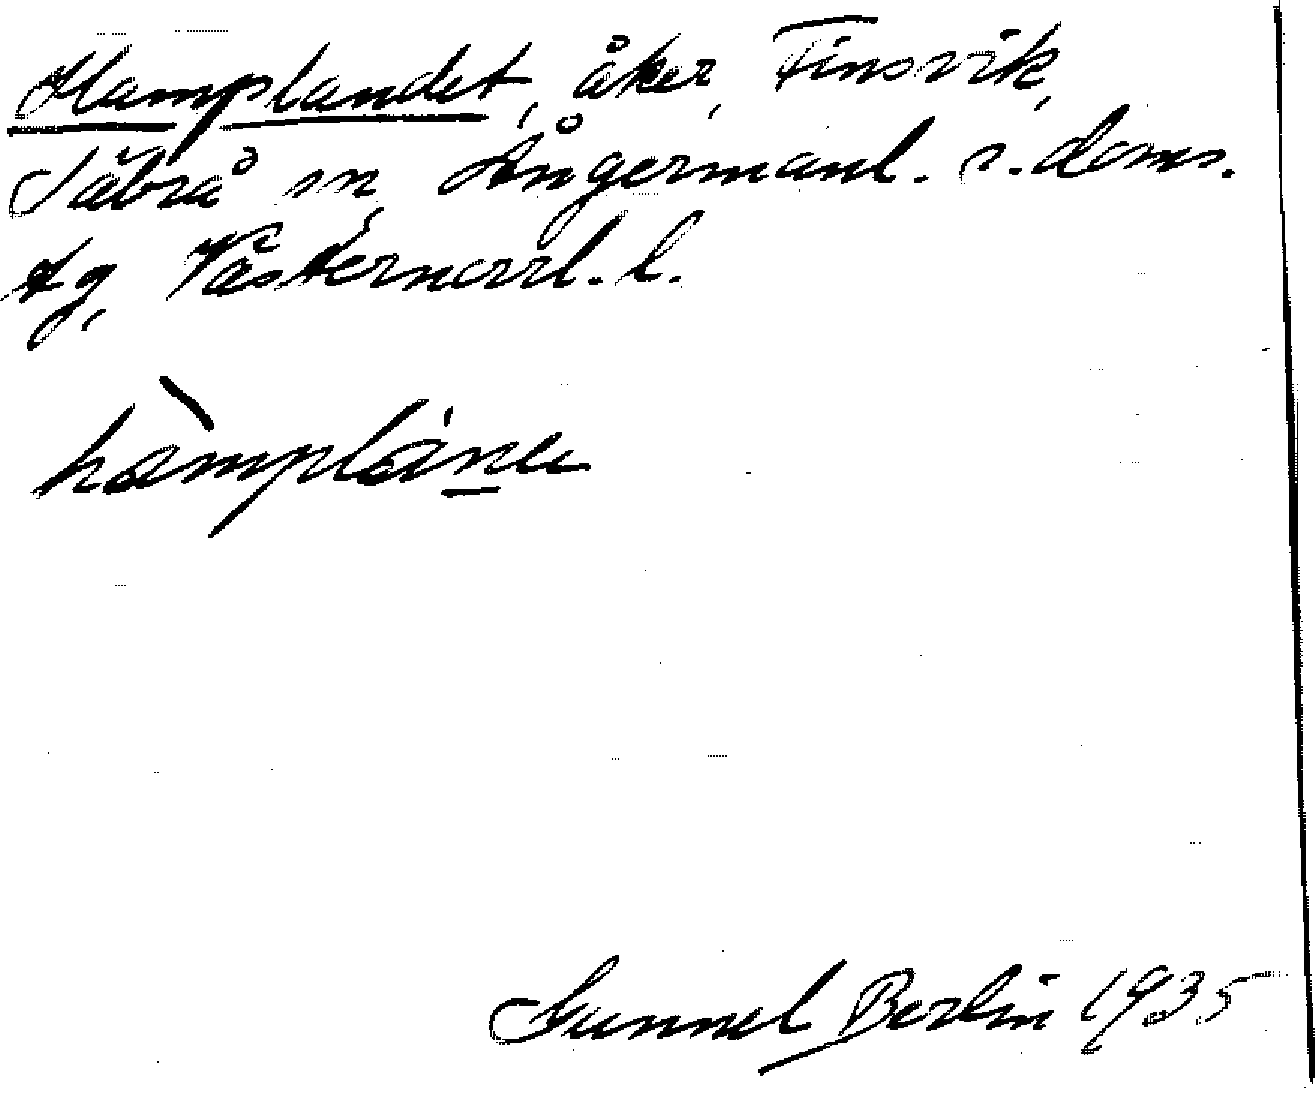 Hamplandet, åker, Finsvik,
Säbrå sn, Ångermanl. s. doms.
tg, Västernorrl. l.
hàmpláne
Gunnel Berlin 1935